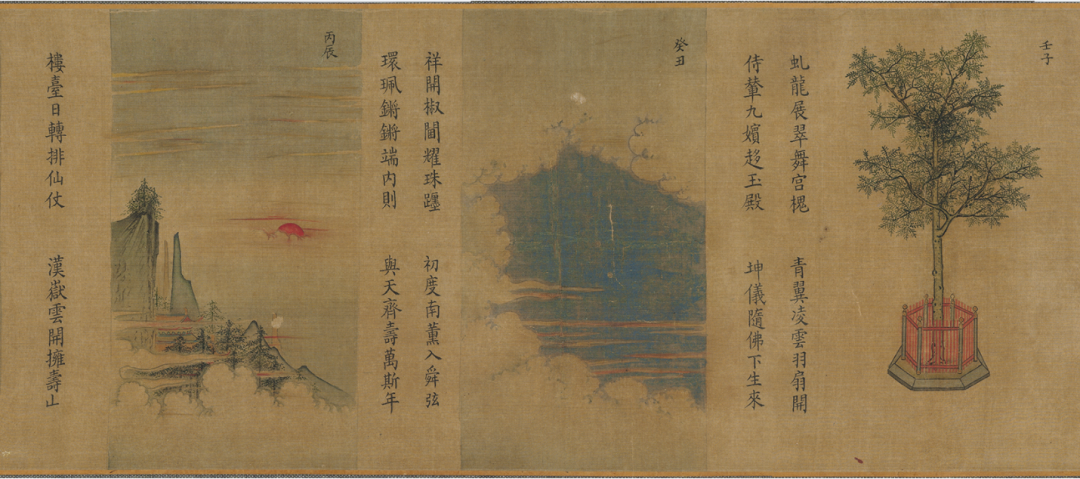 壬子
虬龍展翠舞宫槐　青翼凌雲羽扇開
侍輦九嬪趍玉殿　坤儀隨佛下生來
癸丑
祥開椒閫耀珠躔　初度南薰入舜弦
環珮鏘鏘端内則　與天齊壽萬斯年
丙辰
樓臺日轉排仙仗　漢嶽雲開擁壽山